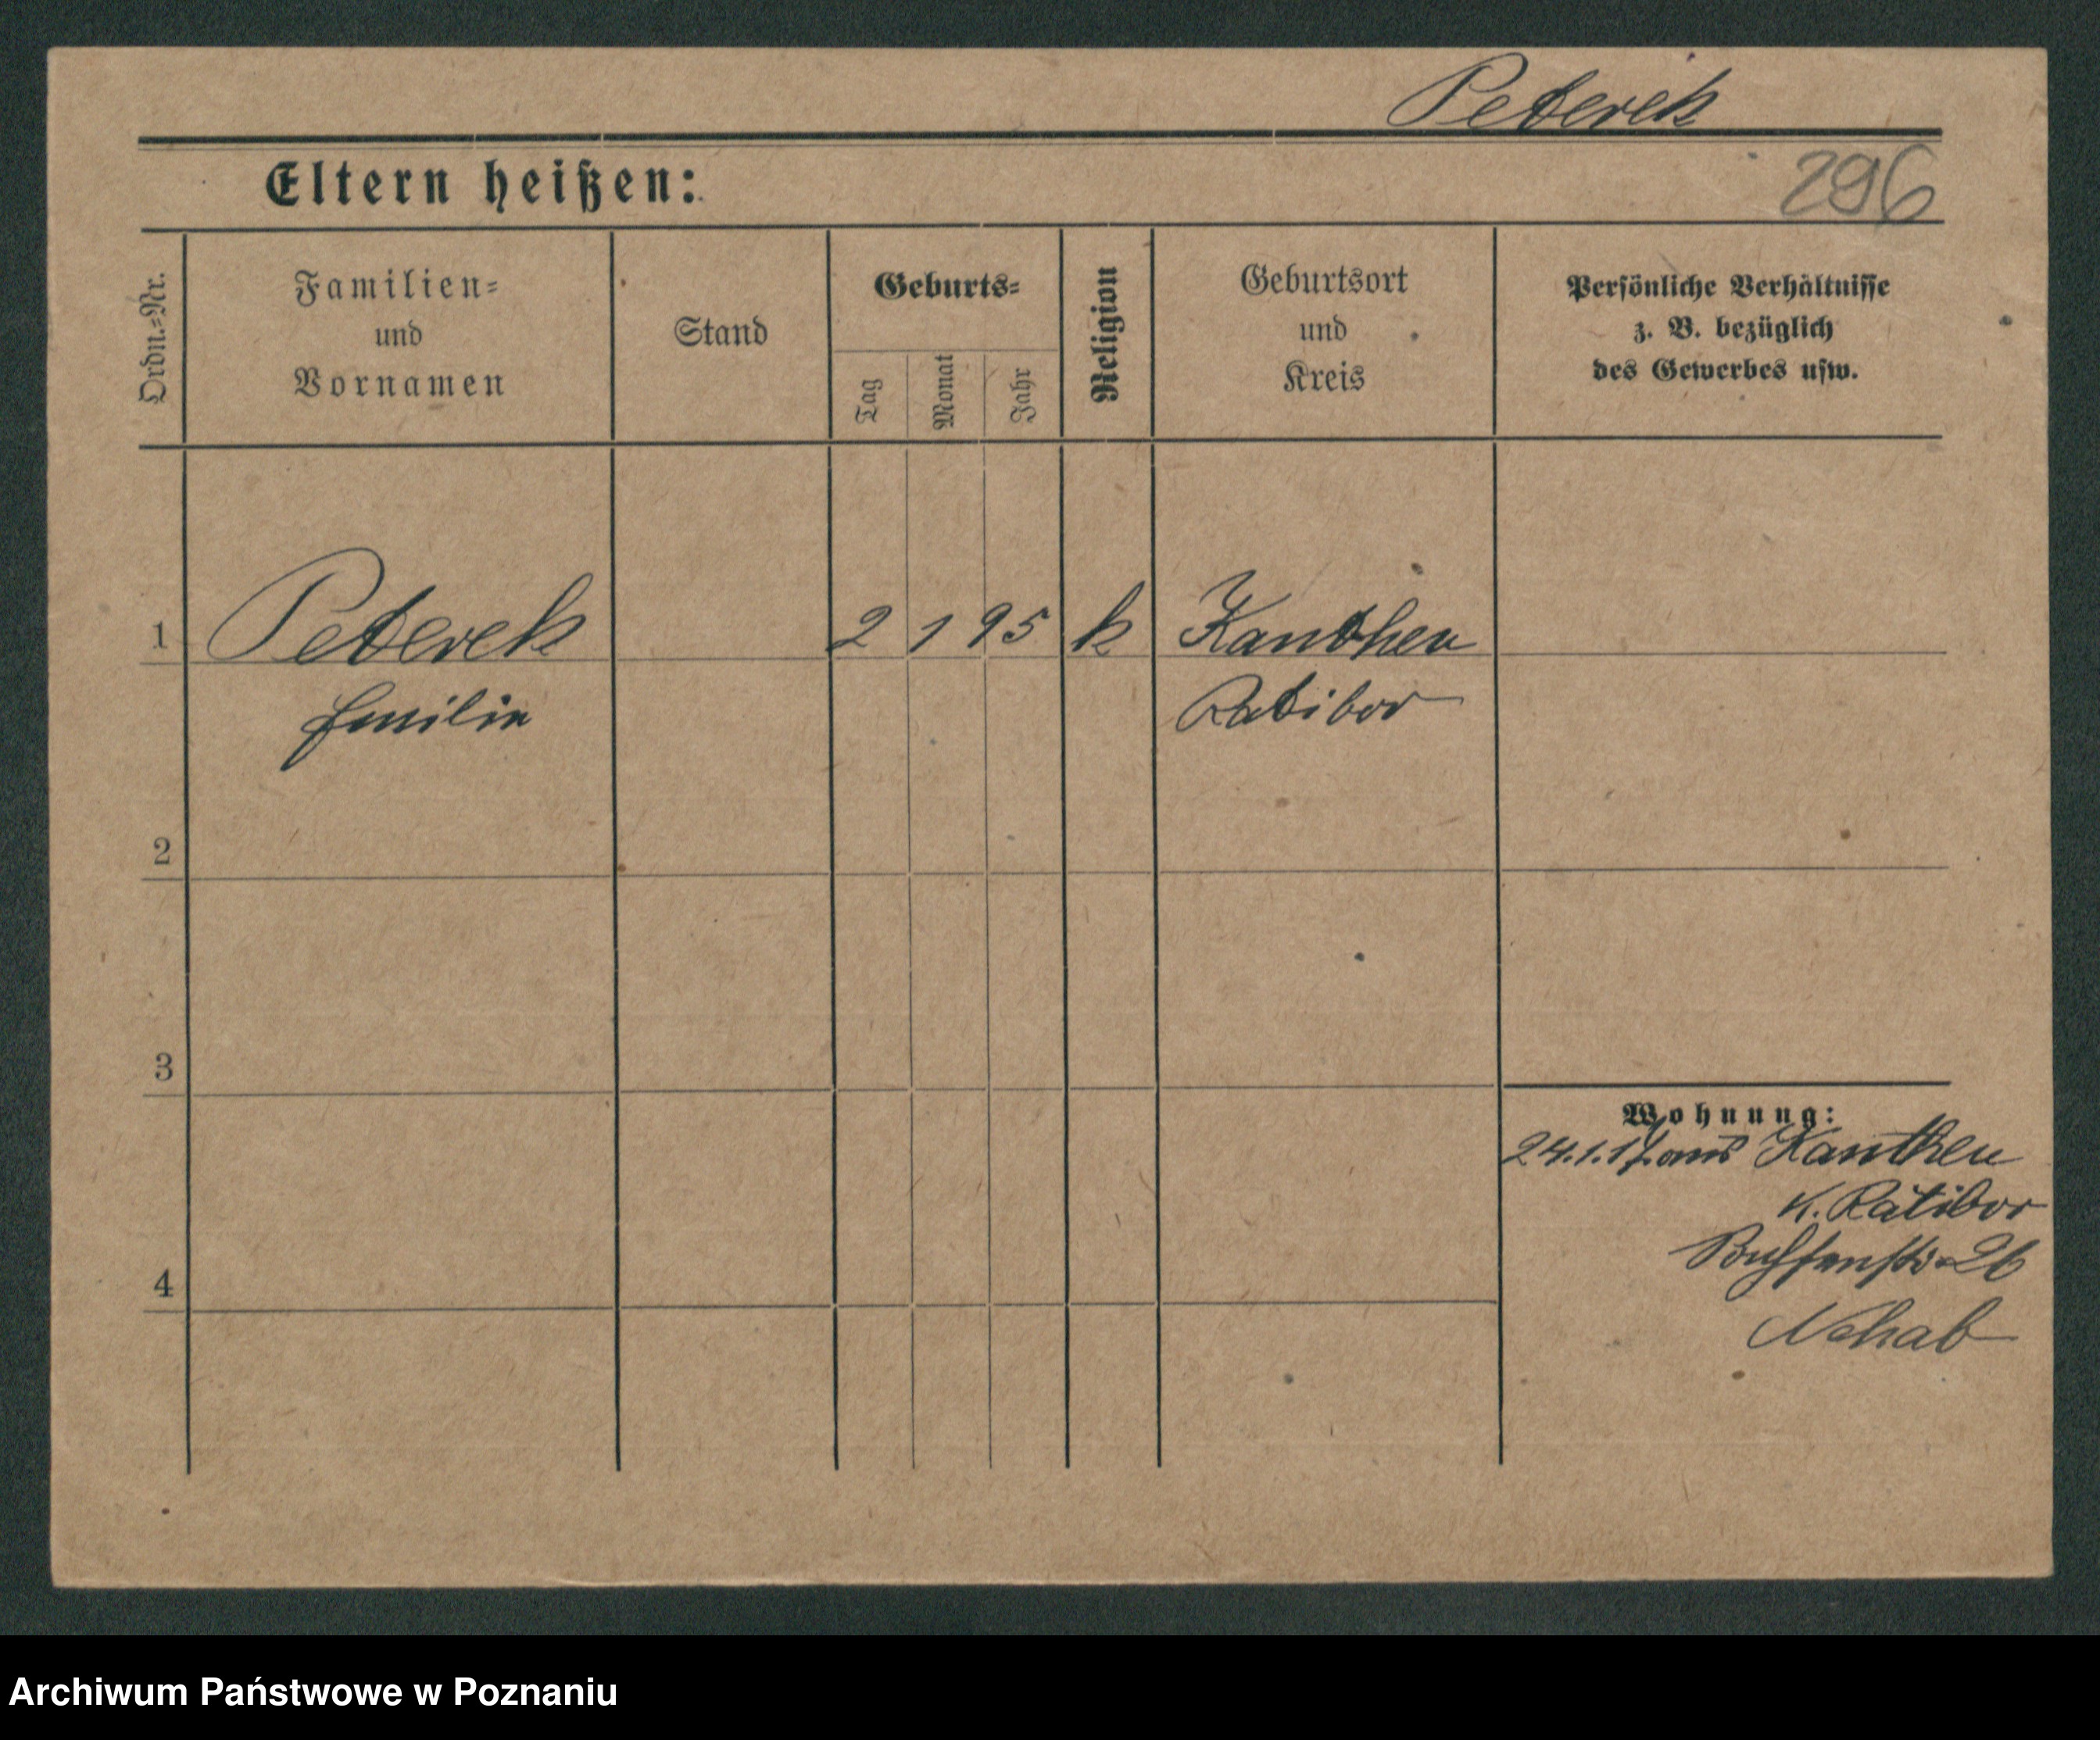 Peterek
Eltern heißen:
296
Ordn.=Nr.
Familien=
und
Vornamen
Stand
Geburts=
Tag
Monat
Jahr
Religion
Geburtsort
und
Kreis
Persönliche Verhältnisse
z. B. bezüglich
des Gewerbes usw.
1 Peterek 2 1 95 k Kanthen
Emilie Ratibor
2
3
4
Wohnung:
24.1.17. aus Kanthen
K. Ratibor
26